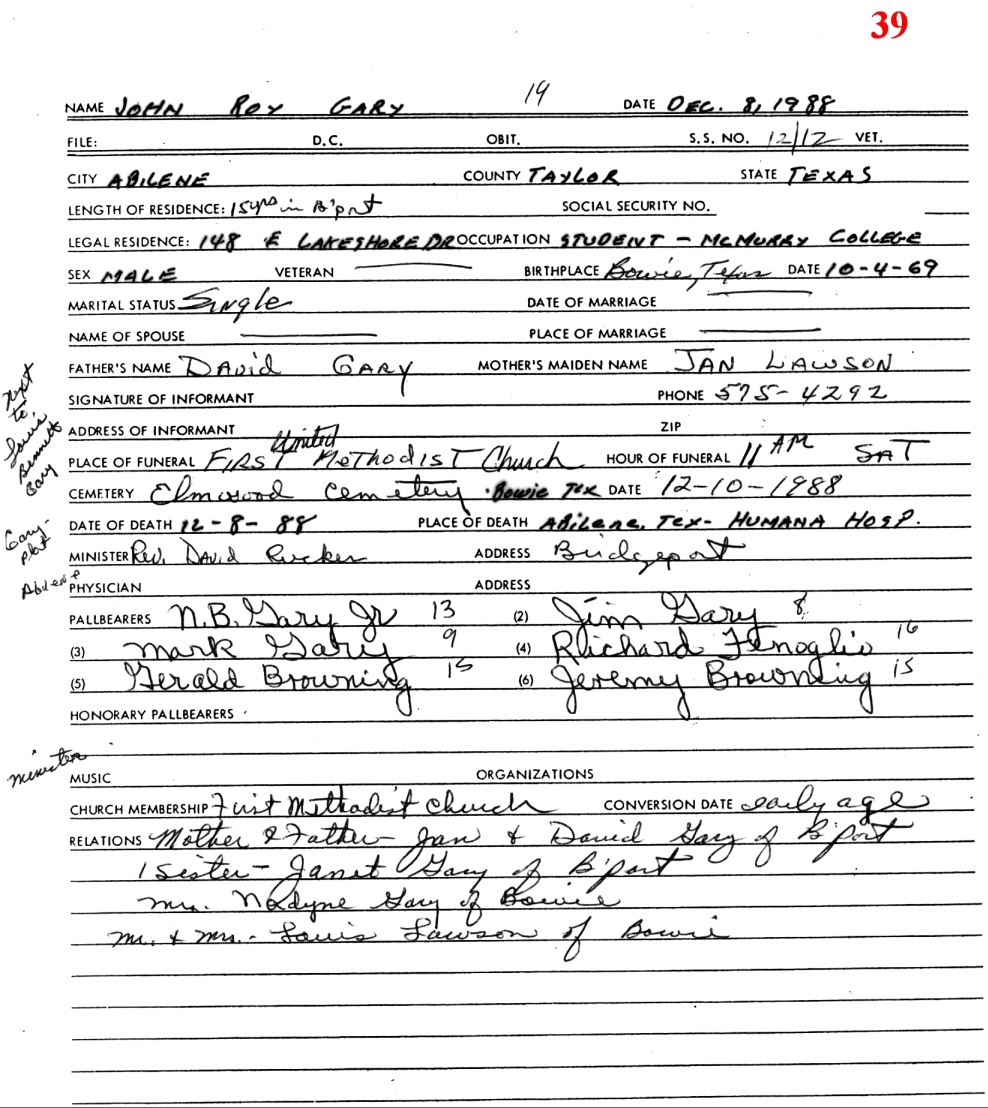 39
NAME JOHN ROY GARY 19 DATE DEC. 8, 1988
FILE: D.C. OBIT. S.S. NO. 12/12 VET.
CITY ABILENE COUNTY TAYLOR STATE TEXAS
LENGTH OF RESIDENCE: 15yrs in B'port SOCIAL SECURITY NO.
LEGAL RESIDENCE: 148 E LAKESHORE DR OCCUPATION STUDENT - McMURRY COLLEGE
SEX MALE VETERAN BIRTHPLACE Bowie, Texas DATE 10-4-69
MARITAL STATUS Single DATE OF MARRIAGE
NAME OF SPOUSE PLACE OF MARRIAGE
FATHER'S NAME David GARY MOTHER'S MAIDEN NAME JAN LAWSON
SIGNATURE OF INFORMANT PHONE 575-4292
ADDRESS OF INFORMANT ZIP
PLACE OF FUNERAL FIRST United Methodist Church HOUR OF FUNERAL 11 AM SAT
CEMETERY Elmwood Cemetery - Bowie Tex DATE 12-10-1988
DATE OF DEATH 12-8-88 PLACE OF DEATH Abilene, Tex- HUMANA HOSP.
MINISTER Rev. David Rucker ADDRESS Bridgeport
PHYSICIAN ADDRESS
PALLBEARERS N.B. Gary Jr 13 (2) Jim Gary 8
(3) Mark Gary 9 (4) Richard Fenoglio 16
(5) Gerald Browning 15 (6) Jeremy Browning 15
HONORARY PALLBEARERS
MUSIC ORGANIZATIONS
CHURCH MEMBERSHIP First Methodist Church CONVERSION DATE early age
RELATIONS Mother & Father - Jan & David Gary of B'port
1 Sister - Janet Gary of B'port
Mrs. Nadyne Gary of Bowie
Mr. & Mrs. - Louis Lawson of Bowie
next
to
Louis
Bennett
Gary
Gary-
plot
Abilene
minister